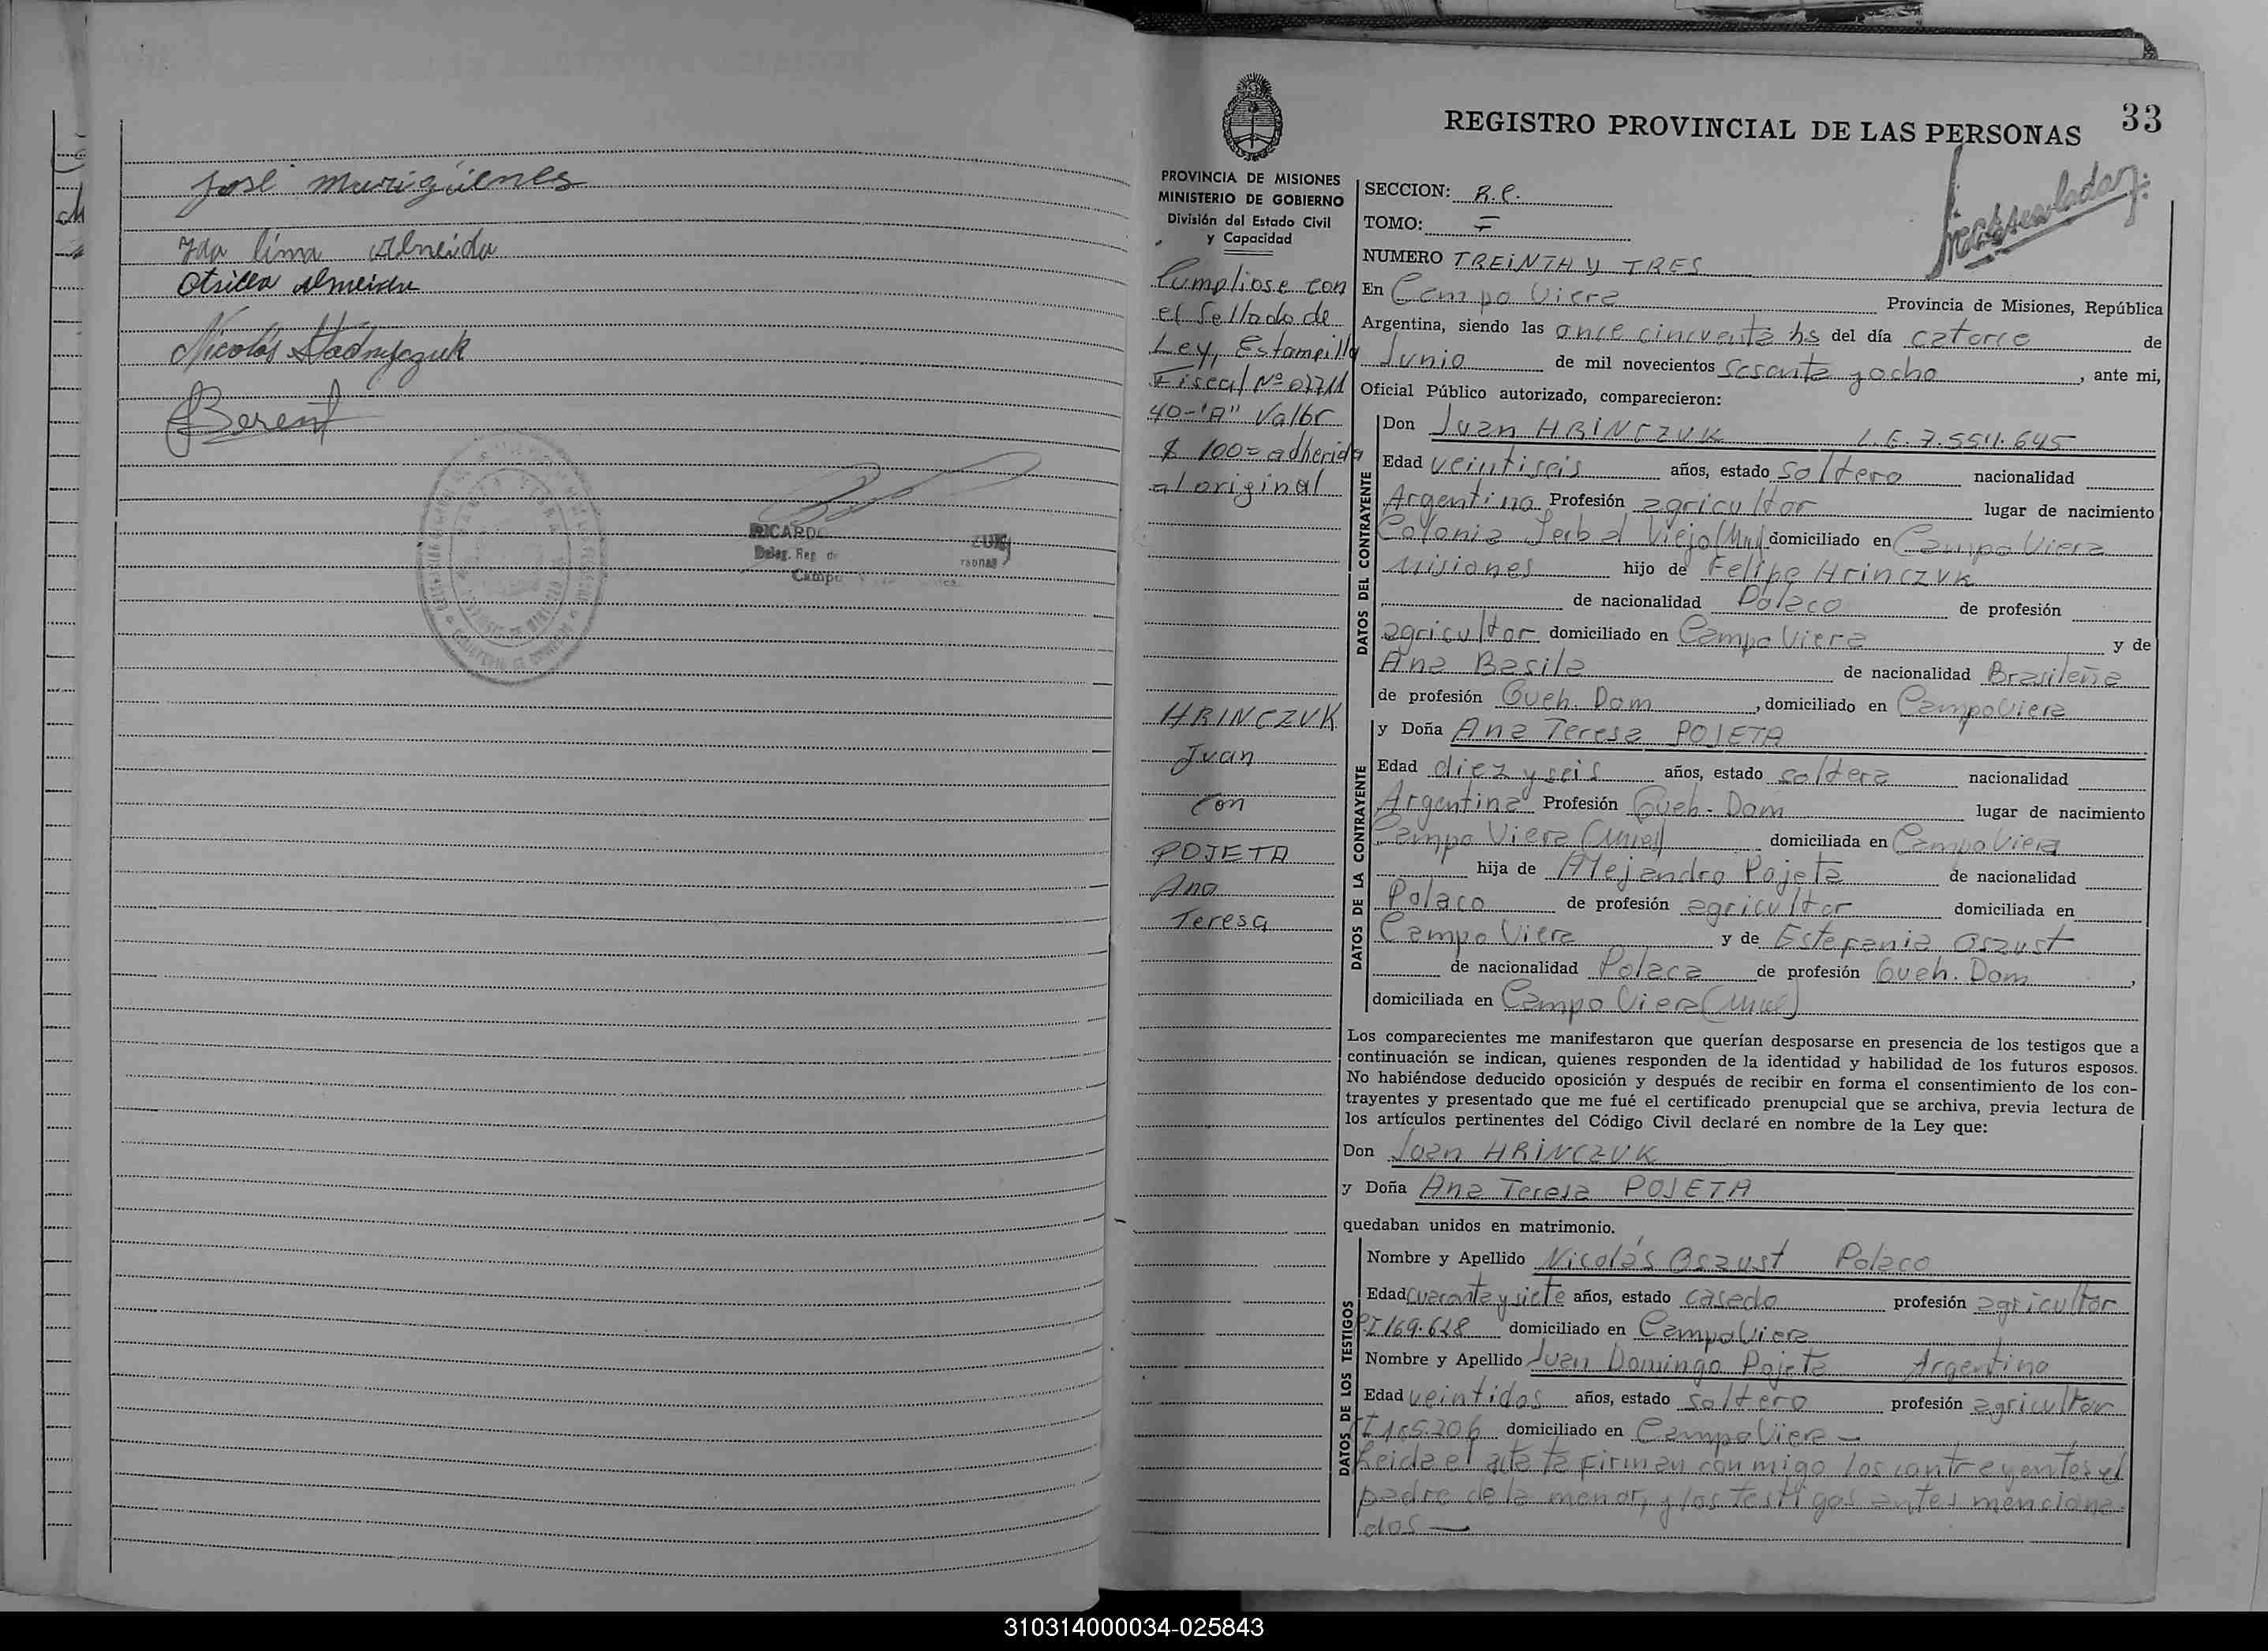 José
Ida lima Almeida
Otilia Almeida
Nicolás
Berent
RICARDO ZUK
Deleg. Reg. de
Campo
33
REGISTRO PROVINCIAL DE LAS PERSONAS
PROVINCIA DE MISIONES
MINISTERIO DE GOBIERNO
División del Estado Civil
y Capacidad
Cumpliose con
el Sellado de
Ley, Estampilla
Fiscal Nº 02711
40-"A" Valor
$ 100= adherida
al original
HRINCZUK
Juan
con
POJETA
Ana
Teresa
SECCION: R.C.
TOMO: I
NUMERO TREINTA y TRES
En Campo Viera Provincia de Misiones, República
Argentina, siendo las once cincuenta hs del día catorce de
Junio de mil novecientos sesenta y ocho, ante mi,
Oficial Público autorizado, comparecieron:
DATOS DEL CONTRAYENTE
Don Juan HRINCZUK L.E. 7.554.645
Edad veintiseis años, estado soltero nacionalidad
Argentino Profesión agricultor lugar de nacimiento
Colonia Yerbal Viejo (Mnes) domiciliado en Campo Viera
Misiones hijo de Felipe Hrinczuk
de nacionalidad Polaco de profesión
agricultor domiciliado en Campo Viera y de
Ana Basila de nacionalidad Brasileña
de profesión Queh. Dom, domiciliado en Campo Viera
DATOS DE LA CONTRAYENTE
y Doña Ana Teresa POJETA
Edad diez y seis años, estado soltera nacionalidad
Argentina Profesión Queh. Dom lugar de nacimiento
Campo Viera (Mnes) domiciliada en Campo Viera
hija de Alejandro Pojeta de nacionalidad
Polaco de profesión agricultor domiciliada en
Campo Viera y de Estefania Oszust
de nacionalidad Polaca de profesión Queh. Dom,
domiciliada en Campo Viera (Mnes)
Los comparecientes me manifestaron que querían desposarse en presencia de los testigos que a
continuación se indican, quienes responden de la identidad y habilidad de los futuros esposos.
No habiéndose deducido oposición y después de recibir en forma el consentimiento de los con-
trayentes y presentado que me fué el certificado prenupcial que se archiva, previa lectura de
los artículos pertinentes del Código Civil declaré en nombre de la Ley que:
Don Juan HRINCZUK
y Doña Ana Teresa POJETA
quedaban unidos en matrimonio.
DATOS DE LOS TESTIGOS
Nombre y Apellido Nicolás Oszust Polaco
Edad cuarenta y siete años, estado casado profesión agricultor
CI 169.628 domiciliado en Campo Viera
Nombre y Apellido Juan Domingo Pojeta Argentino
Edad veintidos años, estado soltero profesión agricultor
CI 185.206 domiciliado en Campo Viera -
Leida el acta la firman conmigo los contrayentes el
padre de la menor, y los testigos antes menciona-
dos -
310314000034-025843